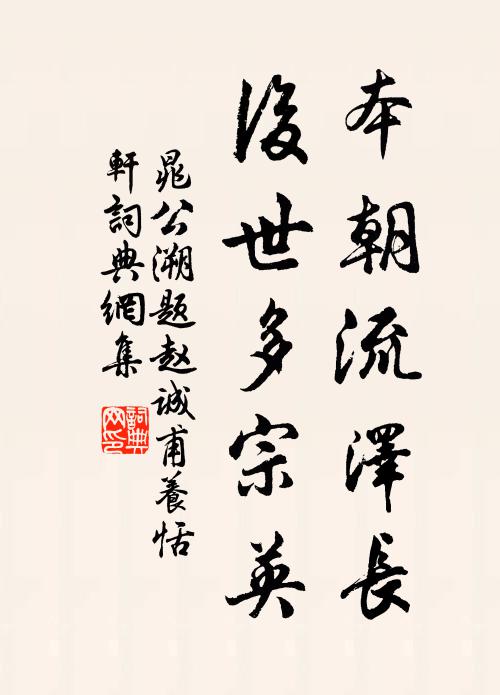 本朝流澤長
後世多宗英
晁公溯題赵誠甫養恬
軒詞典網集
詞典
网印